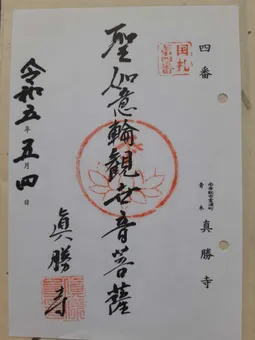 四番
国札
第四番
青木
真勝寺
聖如意輪観世音菩薩
眞勝寺
令和五年五月四日